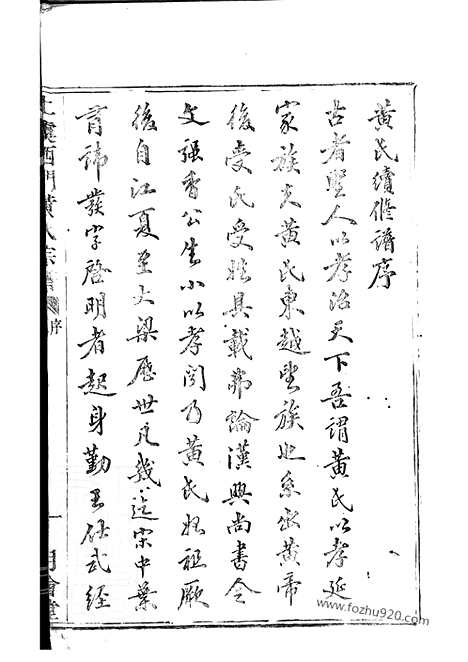 黃氏續修譜序
古者聖人以孝治天下吾謂黃氏以孝延
家族夫黃氏東越望族也系出黃帝
後受氏受姓具載弗論漢興尚書令
文強香公生小以孝聞乃黃氏始祖厥
後自江夏至大梁歷世凡幾迄宋中葉
有諱發字啓明者起身勤王仕武經
上虞西門黃氏宗譜
序
一
www.fozhu920.com